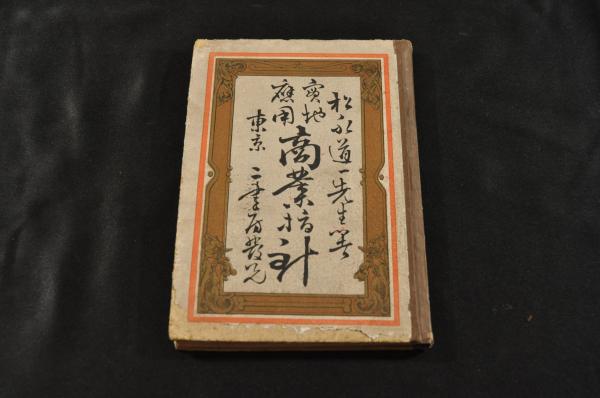 松永道一先生著
實地
應用
商業指針
東京 書房發兌